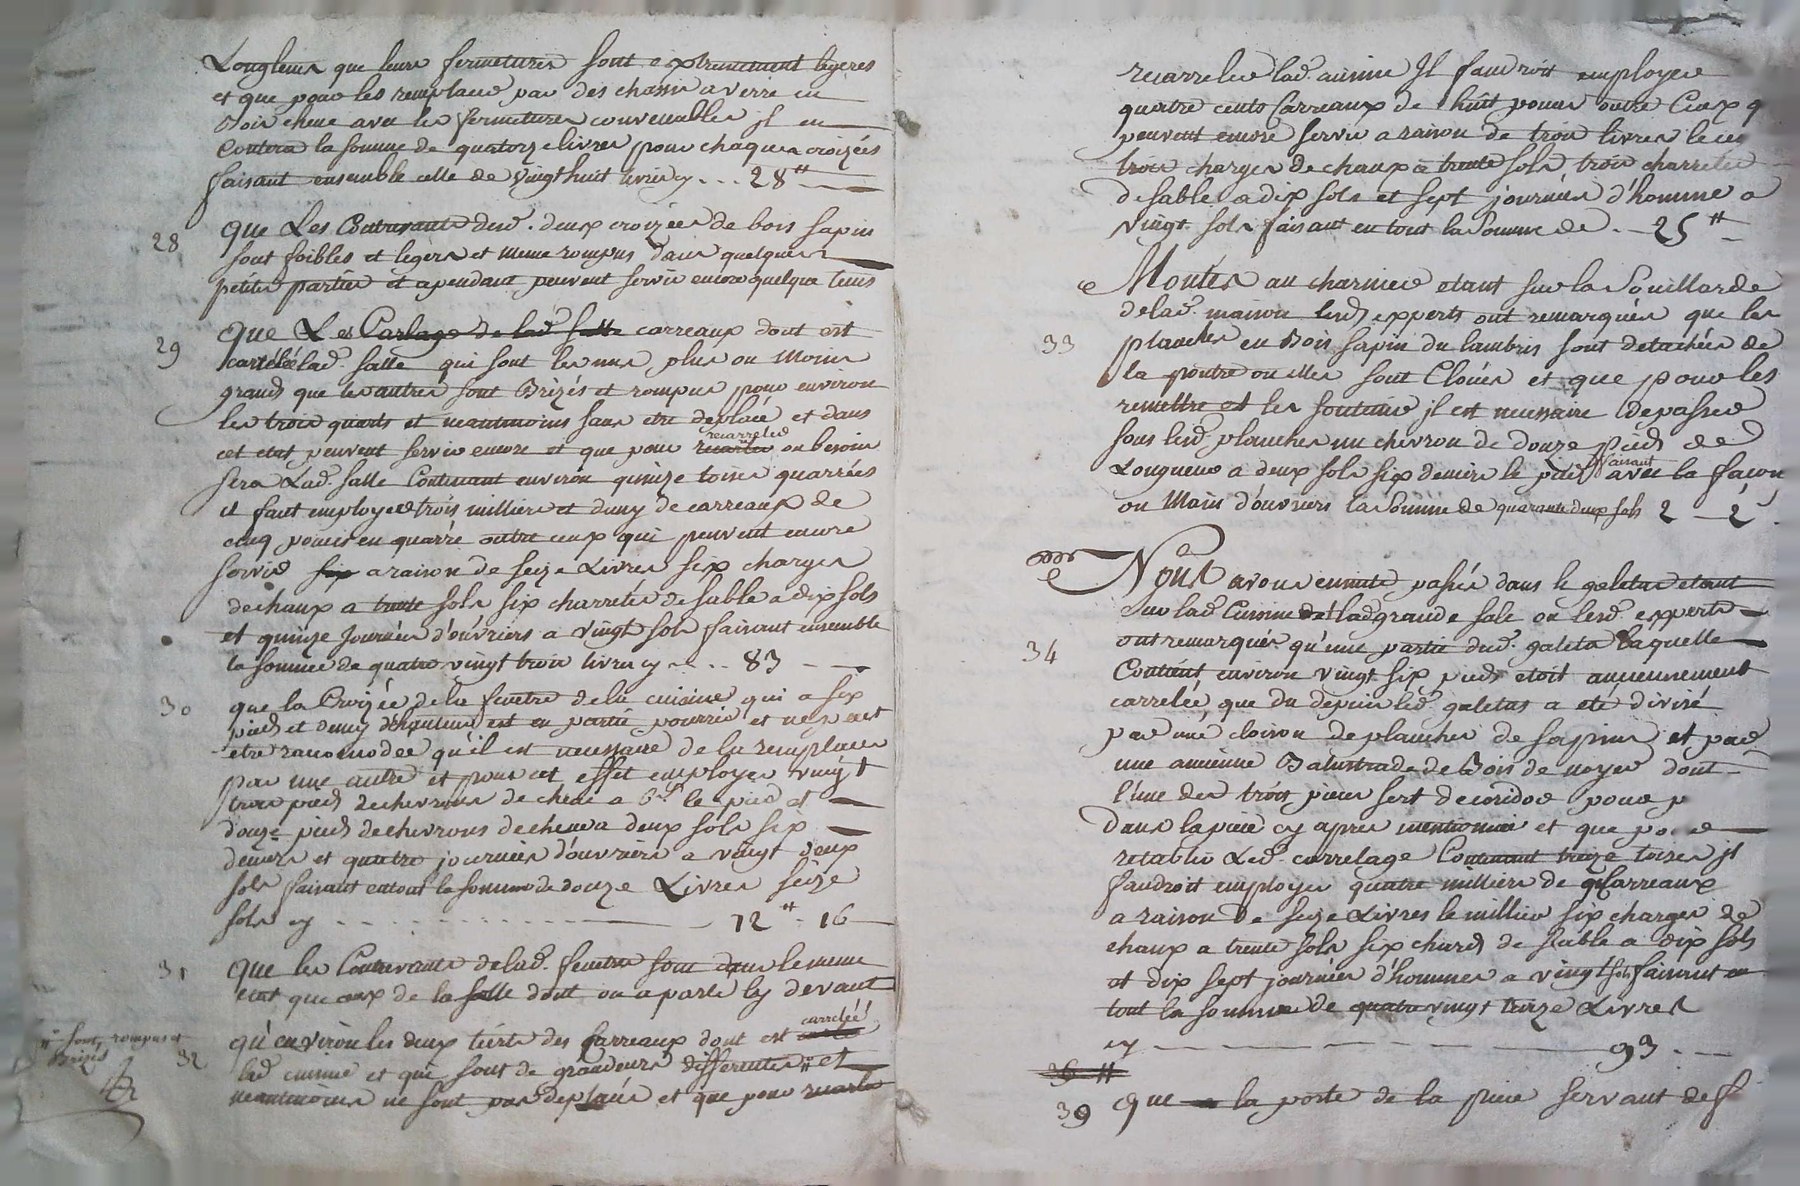 Longleur que leurs fermetures sont extremement legeres
et que pour les remplacer par des chassis a verre en
Bois chene avec les fermetures convenables jl en
Coutera la somme de quatorze livres pour chaques croizées
faisant ensemble celle de vingt huit livres cy ... 28 ₶
28 que Les Contrevants desd. deux croizées de bois sapin
sont foibles et legers et meme rompus dans quelques
petites parties et cependant peuvent servir encore quelque tems
29 que Les Carlage de lad. salle carreaux dont est
carrelée lad. salle qui sont les uns plus ou moins
grands que les autres sont Brizés et rompus pour environ
les trois quarts et neantmoins sans etre deplacé et dans
cet etat peuvent servir encore et que pour recarreler ou besoin
sera Lad. salle Contenant environ quinze toises quarrées
il faut employer trois milliers et demy de carreaux de
cinq pouces en quarré outre ceux qui peuvent encore
servir six a raison de seize Livres six charges
de chaux a trente sols six charretées de sable a dix sols
et quinze journées d'ouvriers a vingt sols faisant ensemble
la somme de quatre vingt trois livres cy ... 83
30 que la Croizée de la fenetre de la cuisine qui a six
pieds et demy d'hauteur est en partie pourrie et ne peut
etre racomodée qu'il est necessaire de la remplacer
par une autre et pour cet effet employer vingt
trois pieds de chevrons de chene a 6 s. le pied et
douze pieds de chevrons de chene a deux sols six
deniers et quatre journées d'ouvriers a vingt deux
sols faisant en tout la somme de douze Livres seize
sols cy 12 ₶ 16
31 que les Contrevants de lad. fenetre sont dans le meme
etat que ceux de la salle dont on a parlé cy devant
32 qu'environ les deux tiers des carreaux dont est carrelée
lad. cuisine et qui sont de grandeurs differentes # et
neantmoins ne sont pas deplacés et que pour recarreler
# sont rompus et
Brizés
recarreler lad. cuisine Il faudroit employer
quatre cents Carreaux de huit pouces outre Ceux q
peuvent encore servir a raison de trois livres le cen
trois charges de chaux a trente sols trois charretées
de sable a dix sols et sept journées d'homme a
vingt sols faisant en tout la Somme de 25 ₶
Montés au charnier etant sur la Souillarde
de lad. maison lesd. experts ont remarqués que les
33 planches en Bois sapin du lambris sont detachées de
la poutre ou elles sont Clouées et que pour les
remettre et les soutenir jl est necessaire de passer
sous lesd. planches un chevron de douze pieds de
Longueur a deux sols six deniers le pied faisant avec la façon
ou Main d'ouvriers la Somme de quarante deux sols 2 2
Nous avons ensuite passés dans le galetas etant
sur lad. Cuisine de lad. grande sale ou lesd. experts
34 ont remarqués qu'une partie dud. galeta Laquelle
Contient environ vingt six pieds etoit anciennement
carrelée, que du depuis led. galetas a eté divisé
par une cloison de planches de sapin et par
une ancienne Balustrade de Bois de noyer dont
l'une des trois pieces sert de coridor pour p
dans la piece cy apres mentionnée et que pour
retablir Led. carrelage Contenant treize toises jl
faudroit employer quatre milliers de Carreaux
a raison de seize Livres le millier six charges de
chaux a trente sols six chards de sable a dix sols
et dix sept journées d'hommes a vingt sols faisant en
tout la somme de quatre vingt treize Livres
cy 93
39 que la porte de la piece servant de